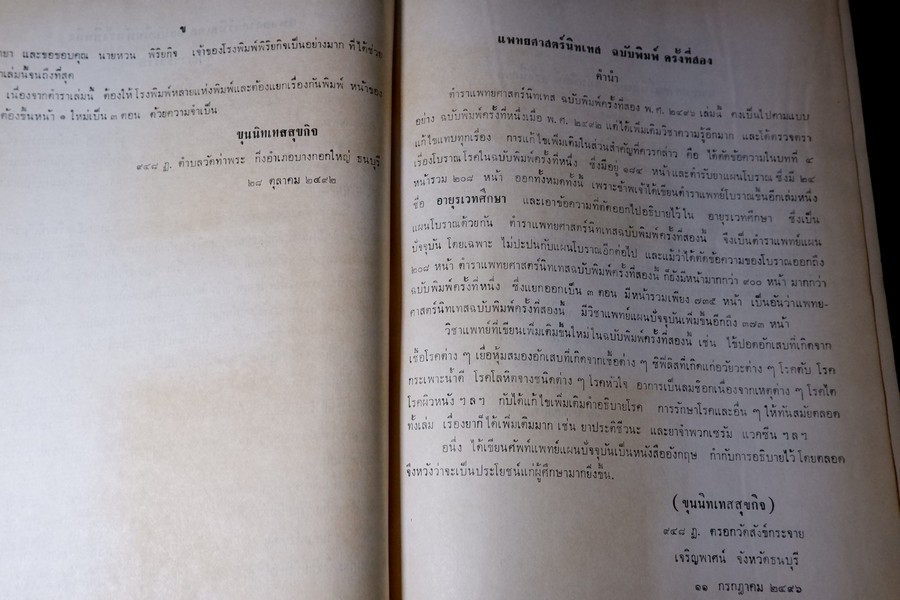 ข
และขอขอบคุณ นายหวน พิริยกิจ เจ้าของโรงพิมพ์พิริยกิจเป็นอย่างมาก ที่ได้ช่วย
เล่มนี้จนถึงที่สุด
เนื่องจากตำราเล่มนี้ ต้องให้โรงพิมพ์หลายแห่งพิมพ์และต้องแยกเรื่องกันพิมพ์ หน้าของ
ต้องขึ้นหน้า ๑ ใหม่เป็น ๓ ตอน ด้วยความจำเป็น
ขุนนิทเทสสุขกิจ
๙๔๘ ฏ. ตำบลวัดท่าพระ กิ่งอำเภอบางกอกใหญ่ ธนบุรี
๒๘ ตุลาคม ๒๔๙๒
แพทยศาสตร์นิทเทส ฉบับพิมพ์ ครั้งที่สอง
คำนำ
ตำราแพทยศาสตร์นิทเทส ฉบับพิมพ์ครั้งที่สอง พ.ศ. ๒๔๙๖ เล่มนี้ คงเป็นไปตามแบบ
อย่าง ฉบับพิมพ์ครั้งที่หนึ่งเมื่อ พ.ศ. ๒๔๙๒ แต่ได้เพิ่มเติมวิชาความรู้อีกมาก และได้ตรวจตรา
แก้ไขแทบทุกเรื่อง การแก้ไขเพิ่มเติมในส่วนสำคัญที่ควรกล่าว คือ ได้ตัดข้อความในบทที่ ๔
เรื่องโบราณโรคในฉบับพิมพ์ครั้งที่หนึ่ง ซึ่งมีอยู่ ๑๘๔ หน้าและตำรับยาแผนโบราณ ซึ่งมี ๒๔
หน้ารวม ๒๐๘ หน้า ออกทั้งหมดทั้งนี้ เพราะข้าพเจ้าได้เขียนตำราแพทย์โบราณขึ้นอีกเล่มหนึ่ง
ชื่อ อายุรเวทศึกษา และเอาข้อความที่ตัดออกไปอธิบายไว้ใน อายุรเวทศึกษา ซึ่งเป็น
แผนโบราณด้วยกัน ตำราแพทยศาสตร์นิทเทสฉบับพิมพ์ครั้งที่สองนี้ จึงเป็นตำราแพทย์แผน
ปัจจุบัน โดยเฉพาะ ไม่ปะปนกับแผนโบราณอีกต่อไป และแม้ว่าได้ตัดข้อความของโบราณออกถึง
๒๐๘ หน้า ตำราแพทยศาสตร์นิทเทสฉบับพิมพ์ครั้งที่สองนี้ ก็ยังมีหน้ามากกว่า ๙๐๐ หน้า มากกว่า
ฉบับพิมพ์ครั้งที่หนึ่ง ซึ่งแยกออกเป็น ๓ ตอน มีหน้ารวมเพียง ๗๓๕ หน้า เป็นอันว่าแพทย-
ศาสตร์นิทเทสฉบับพิมพ์ครั้งที่สองนี้ มีวิชาแพทย์แผนปัจจุบันเพิ่มขึ้นอีกถึง ๓๗๓ หน้า
วิชาแพทย์ที่เขียนเพิ่มเติมขึ้นใหม่ในฉบับพิมพ์ครั้งที่สองนี้ เช่น ไข้ปอดอักเสบที่เกิดจาก
เชื้อโรคต่าง ๆ เยื่อหุ้มสมองอักเสบที่เกิดจากเชื้อต่าง ๆ ซิฟิลิสที่เกิดแก่อวัยวะต่าง ๆ โรคตับ โรค
กระเพาะน้ำดี โรคโลหิตจางชนิดต่าง ๆ โรคหัวใจ อาการเป็นลมช็อกเนื่องจากเหตุต่าง ๆ โรคไต
โรคผิวหนัง ฯลฯ กับได้แก้ไขเพิ่มเติมคำอธิบายโรค การรักษาโรคและอื่น ๆ ให้ทันสมัยตลอด
ทั้งเล่ม เรื่องยาก็ได้เพิ่มเติมมาก เช่น ยาประติชีวนะ และยาจำพวกเซรัม แวคซีน ฯลฯ
อนึ่ง ได้เขียนศัพท์แพทย์แผนปัจจุบันเป็นหนังสืออังกฤษ กำกับการอธิบายไว้โดยตลอด
จึงหวังว่าจะเป็นประโยชน์แก่ผู้ศึกษามากยิ่งขึ้น.
(ขุนนิทเทสสุขกิจ)
๙๔๘ ฏ. ตรอกวัดสังข์กระจาย
เจริญพาศน์ จังหวัดธนบุรี
๑๑ กรกฎาคม ๒๔๙๖